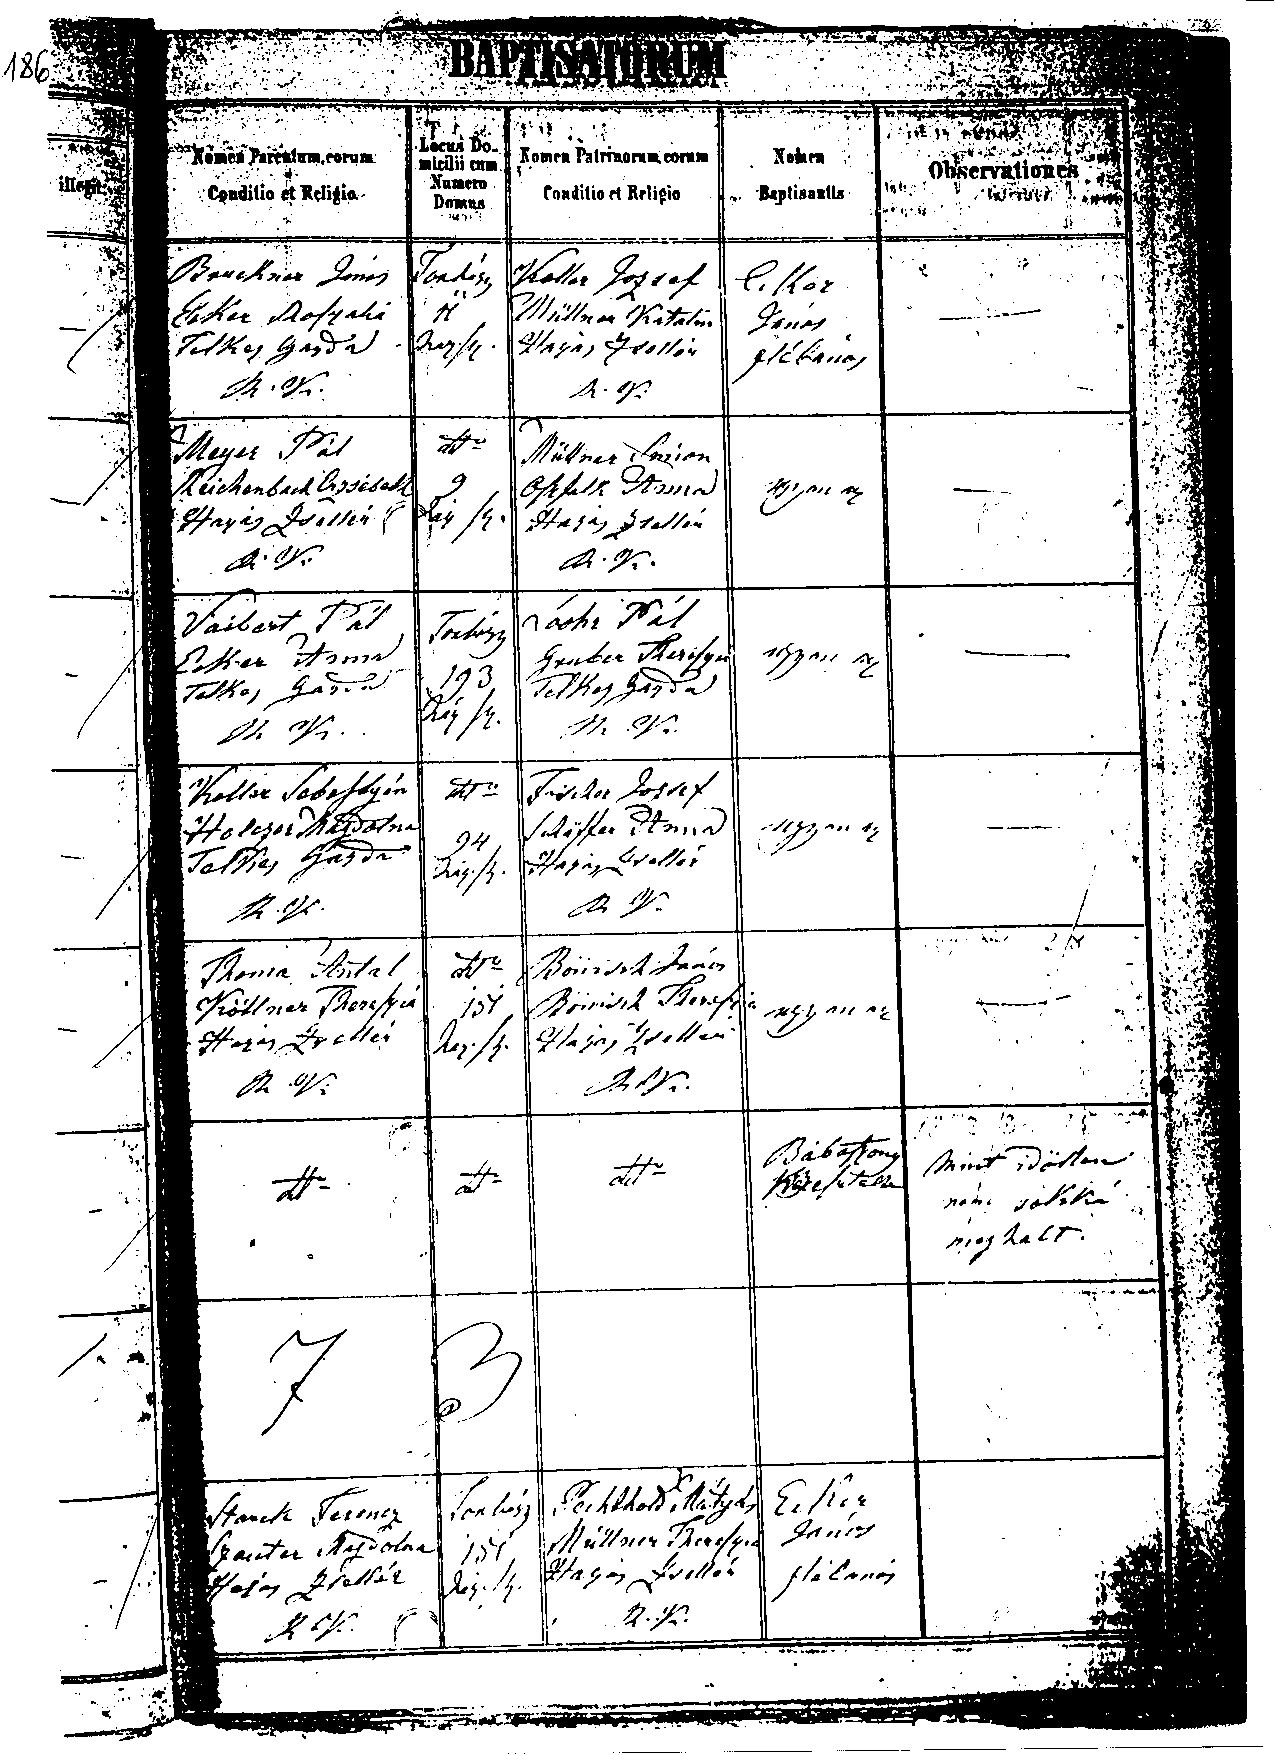 186
BAPTISATORUM
Nomen Parentum, eorum
Conditio et Religio
Locus Do-
micilii cum
Numero
Domus
Nomen Patrinorum, eorum
Conditio et Religio
Nomen
Baptisantis
Observationes
illegit.
Bruckner János
Ecker Roszalia
Telkes Gazda
R. K.
Torbágy
Keller Jozsef
Müllner Katalin
Hazas Zsellér
R. K.
Ecker
János
plébános
Meyer Pál
Reichenbach Erssébeth
Hazás Zsellér
R. K.
dtto
9
Müllner Simon
Anna
Hazas Zsellér
R. K.
ugyan az
Vaibert Pál
Ecker Anna
Telkes Gazda
R. K.
Torbágy
193
Pál
Gruber Theresia
Telkes Gazda
R. K.
ugyan az
Keller Sebestyén
Holczer Magdolna
Telkes Gazda
R. K.
dtto
94
Fischer Jozsef
Schäffer Anna
Hazas Zsellér
R. K.
ugyan az
Thoma Antal
Köllner Theresia
Hazas Zsellér
R. K.
dtto
151
Bönisch János
Bönisch Theresia
Hazas Zsellér
R. K.
ugyan az
dtto
dtto
dtto
Bábaszony
Mint időtlen
nem sokká
meghalt.
7
3
Starck Ferencz
Magdolna
Hazas Zsellér
R. K.
Torbágy
151
Pechthold Mátyás
Müllner Theresia
Hazas Zsellér
R. K.
Ecker
János
plébános